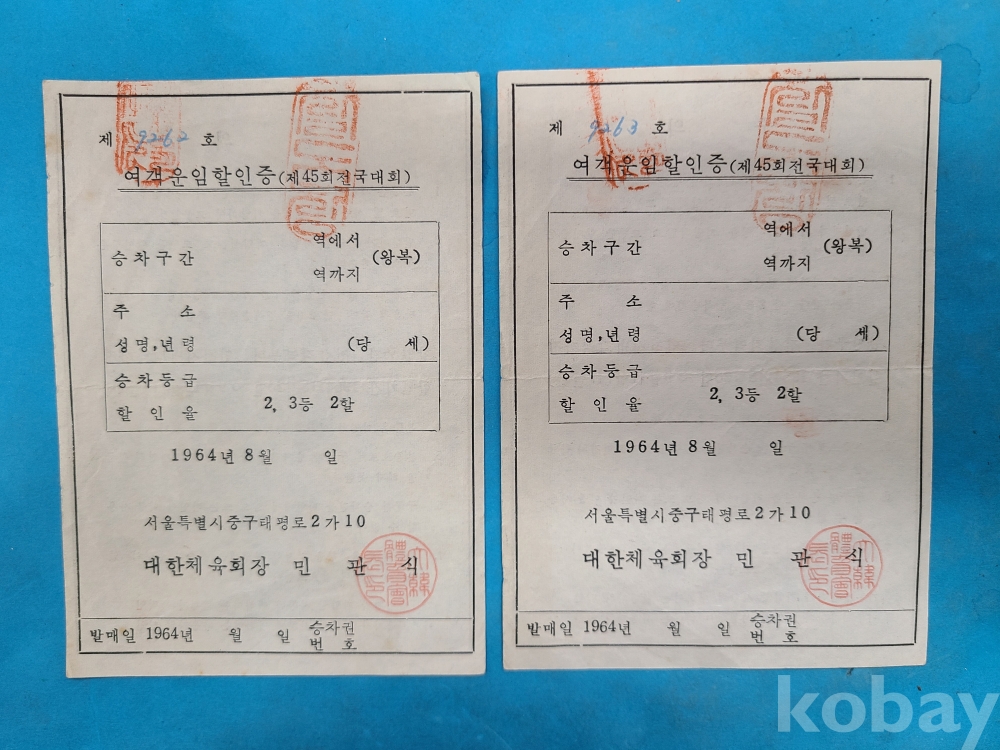 제 9262 호
여객운임할인증(제45회전국대회)
승차구간 역에서 (왕복)
역까지
주 소
성명,년령 (당 세)
승차등급
할인율 2, 3등 2할
1964년 8월 일
서울특별시중구태평로2가10
대한체육회장 민관식
발매일 1964년 월 일 승차권
번호
제 9263 호
여객운임할인증(제45회전국대회)
승차구간 역에서 (왕복)
역까지
주 소
성명,년령 (당 세)
승차등급
할인율 2, 3등 2할
1964년 8월 일
서울특별시중구태평로2가10
대한체육회장 민관식
발매일 1964년 월 일 승차권
번호
kobay